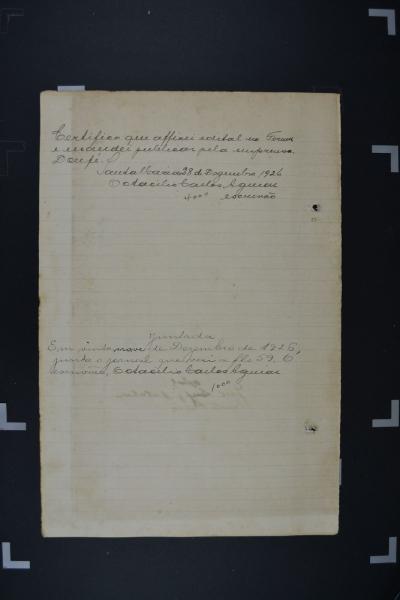 Certifico que affixei edital no Forum
e mandei publicar pela imprensa.
Dou fé.
Santa Maria 28 de Dezembro 1926
Octacilio Carlos Aguiar
4000 escrivão
Juntada
Em vinte nove de Dezembro de 1926,
junto o jornal que vai a fls 59. O
escrivão, Octacilio Carlos Aguiar
1000